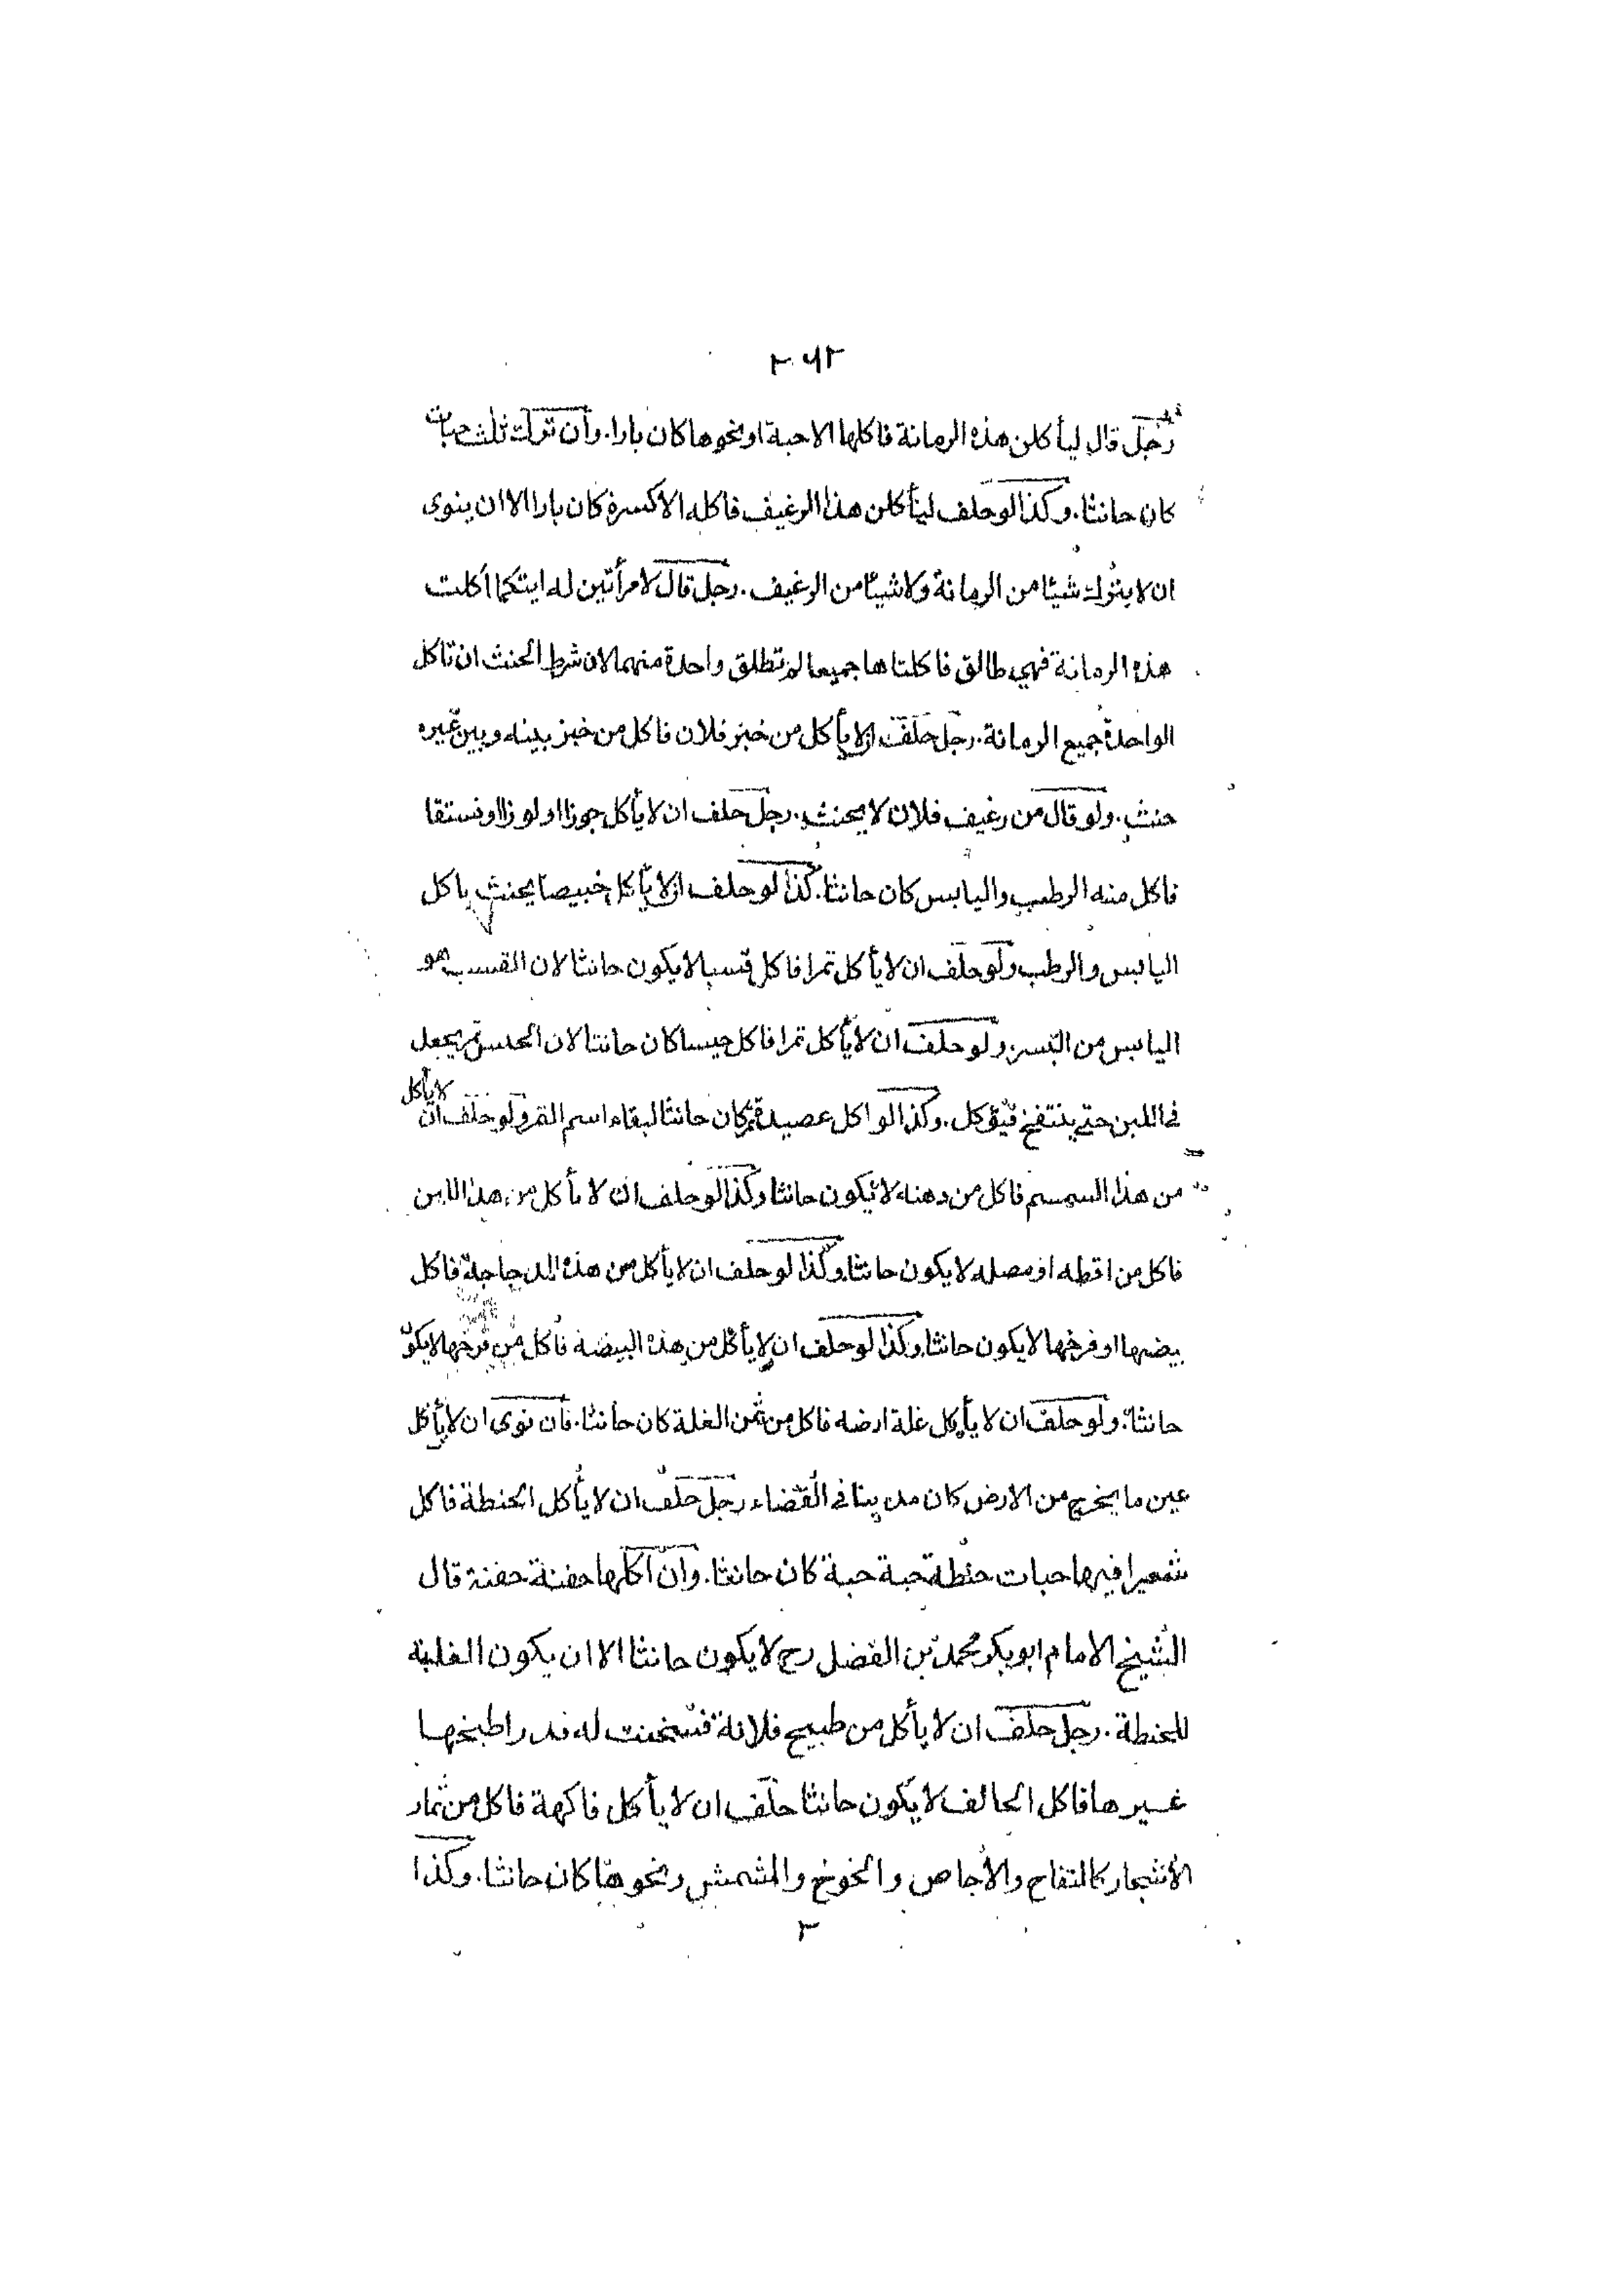 ٢٦٢
رجل قال ليأكلن هذه الرمانة فاكلها الا حبة او نحوها كان بارا. وان ترك ثلث حبات
كان حانثا. وكذا لو حلف ليأكلن هذا الرغيف فاكله الا كسرة كان بارا الا ان ينوى
ان لا يترك شيئا من الرمانة ولا شيئا من الرغيف. رجل قال لامرأتين له ايتكما اكلت
هذه الرمانة فهي طالق فاكلتاها جميعا لم تطلق واحدة منهما لان شرط الحنث ان تاكل
الواحدة جميع الرمانة. رجل حلف ان لا يأكل من خبز فلان فاكل من خبز بينه وبين غيره
حنث. ولو قال من رغيف فلان لا يحنث. رجل حلف ان لا يأكل جوزا او لوزا او فستقا
فاكل منه الرطب واليابس كان حانثا. كذا لو حلف ان لا يأكل خبيصا يحنث باكل
اليابس والرطب ولو حلف ان لا يأكل تمرا فاكل قسبا لا يكون حانثا لان القسب هو
اليابس من البسر. ولو حلف ان لا يأكل تمرا فاكل حيسا كان حانثا لان الحيس تمر يجعل
فى اللبن حتى ينتفخ فيؤكل. وكذا لو اكل عصيدة تمر كان حانثا لبقاء اسم التمر ولو حلف ان لا يأكل
من هذا السمسم فاكل من دهنه لا يكون حانثا وكذا لو حلف ان لا يأكل من هذا اللبن
فاكل من اقطه او مصله لا يكون حانثا وكذا لو حلف ان لا يأكل من هذه الدجاجة فاكل
بيضها او فرخها لا يكون حانثا وكذا لو حلف ان لا يأكل من هذه البيضة فاكل من فرخها لا يكون
حانثا. ولو حلف ان لا يأكل غلة ارضه فاكل من ثمن الغلة كان حانثا. فان نوى ان لا يأكل
عين ما يخرج من الارض كان مدينا فى القضاء رجل حلف ان لا يأكل الحنطة فاكل
شعيرا فيها حبات حنطة حبة حبة كان حانثا. وان اكلها حفنة حفنة قال
الشيخ الامام ابو بكر محمد بن الفضل رح لا يكون حانثا الا ان يكون الغلبة
للحنطة. رجل حلف ان لا يأكل من طبيخ فلانة فسخنت له قدرا طبخها
غيرها فاكل الحالف لا يكون حانثا حلف ان لا يأكل فاكهة فاكل من ثمار
الاشجار كالتفاح والاجاص والخوخ والمشمش ونحوها كان حانثا. وكذا
٣